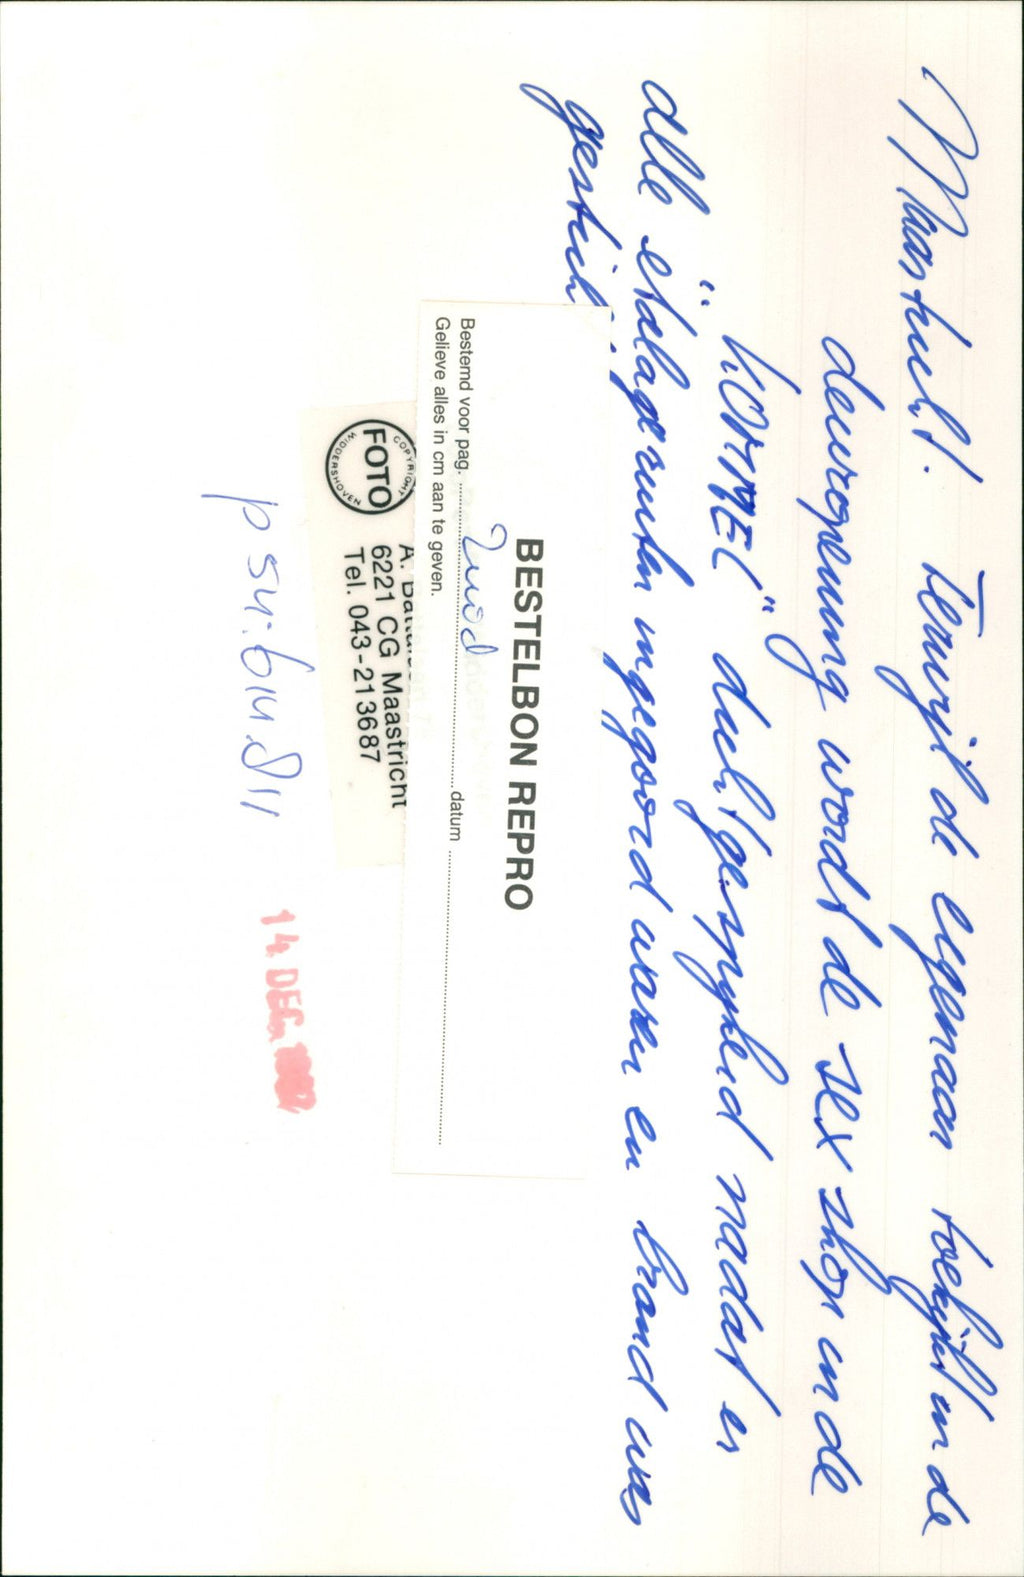 Maastricht. Terwijl de eigenaar toekijkt in de
deuropening wordt de sex shop in de
"HOMMEL" dichtgespijkerd nadat er
alle etalageruiten ingegooid waren en brand was
gesticht
BESTELBON REPRO
Bestemd voor pag. datum
Gelieve alles in cm aan te geven.
COPYRIGHT
FOTO
WIDDERSHOVEN
A.
6221 CG Maastricht
Tel. 043-213687
14 DEC.